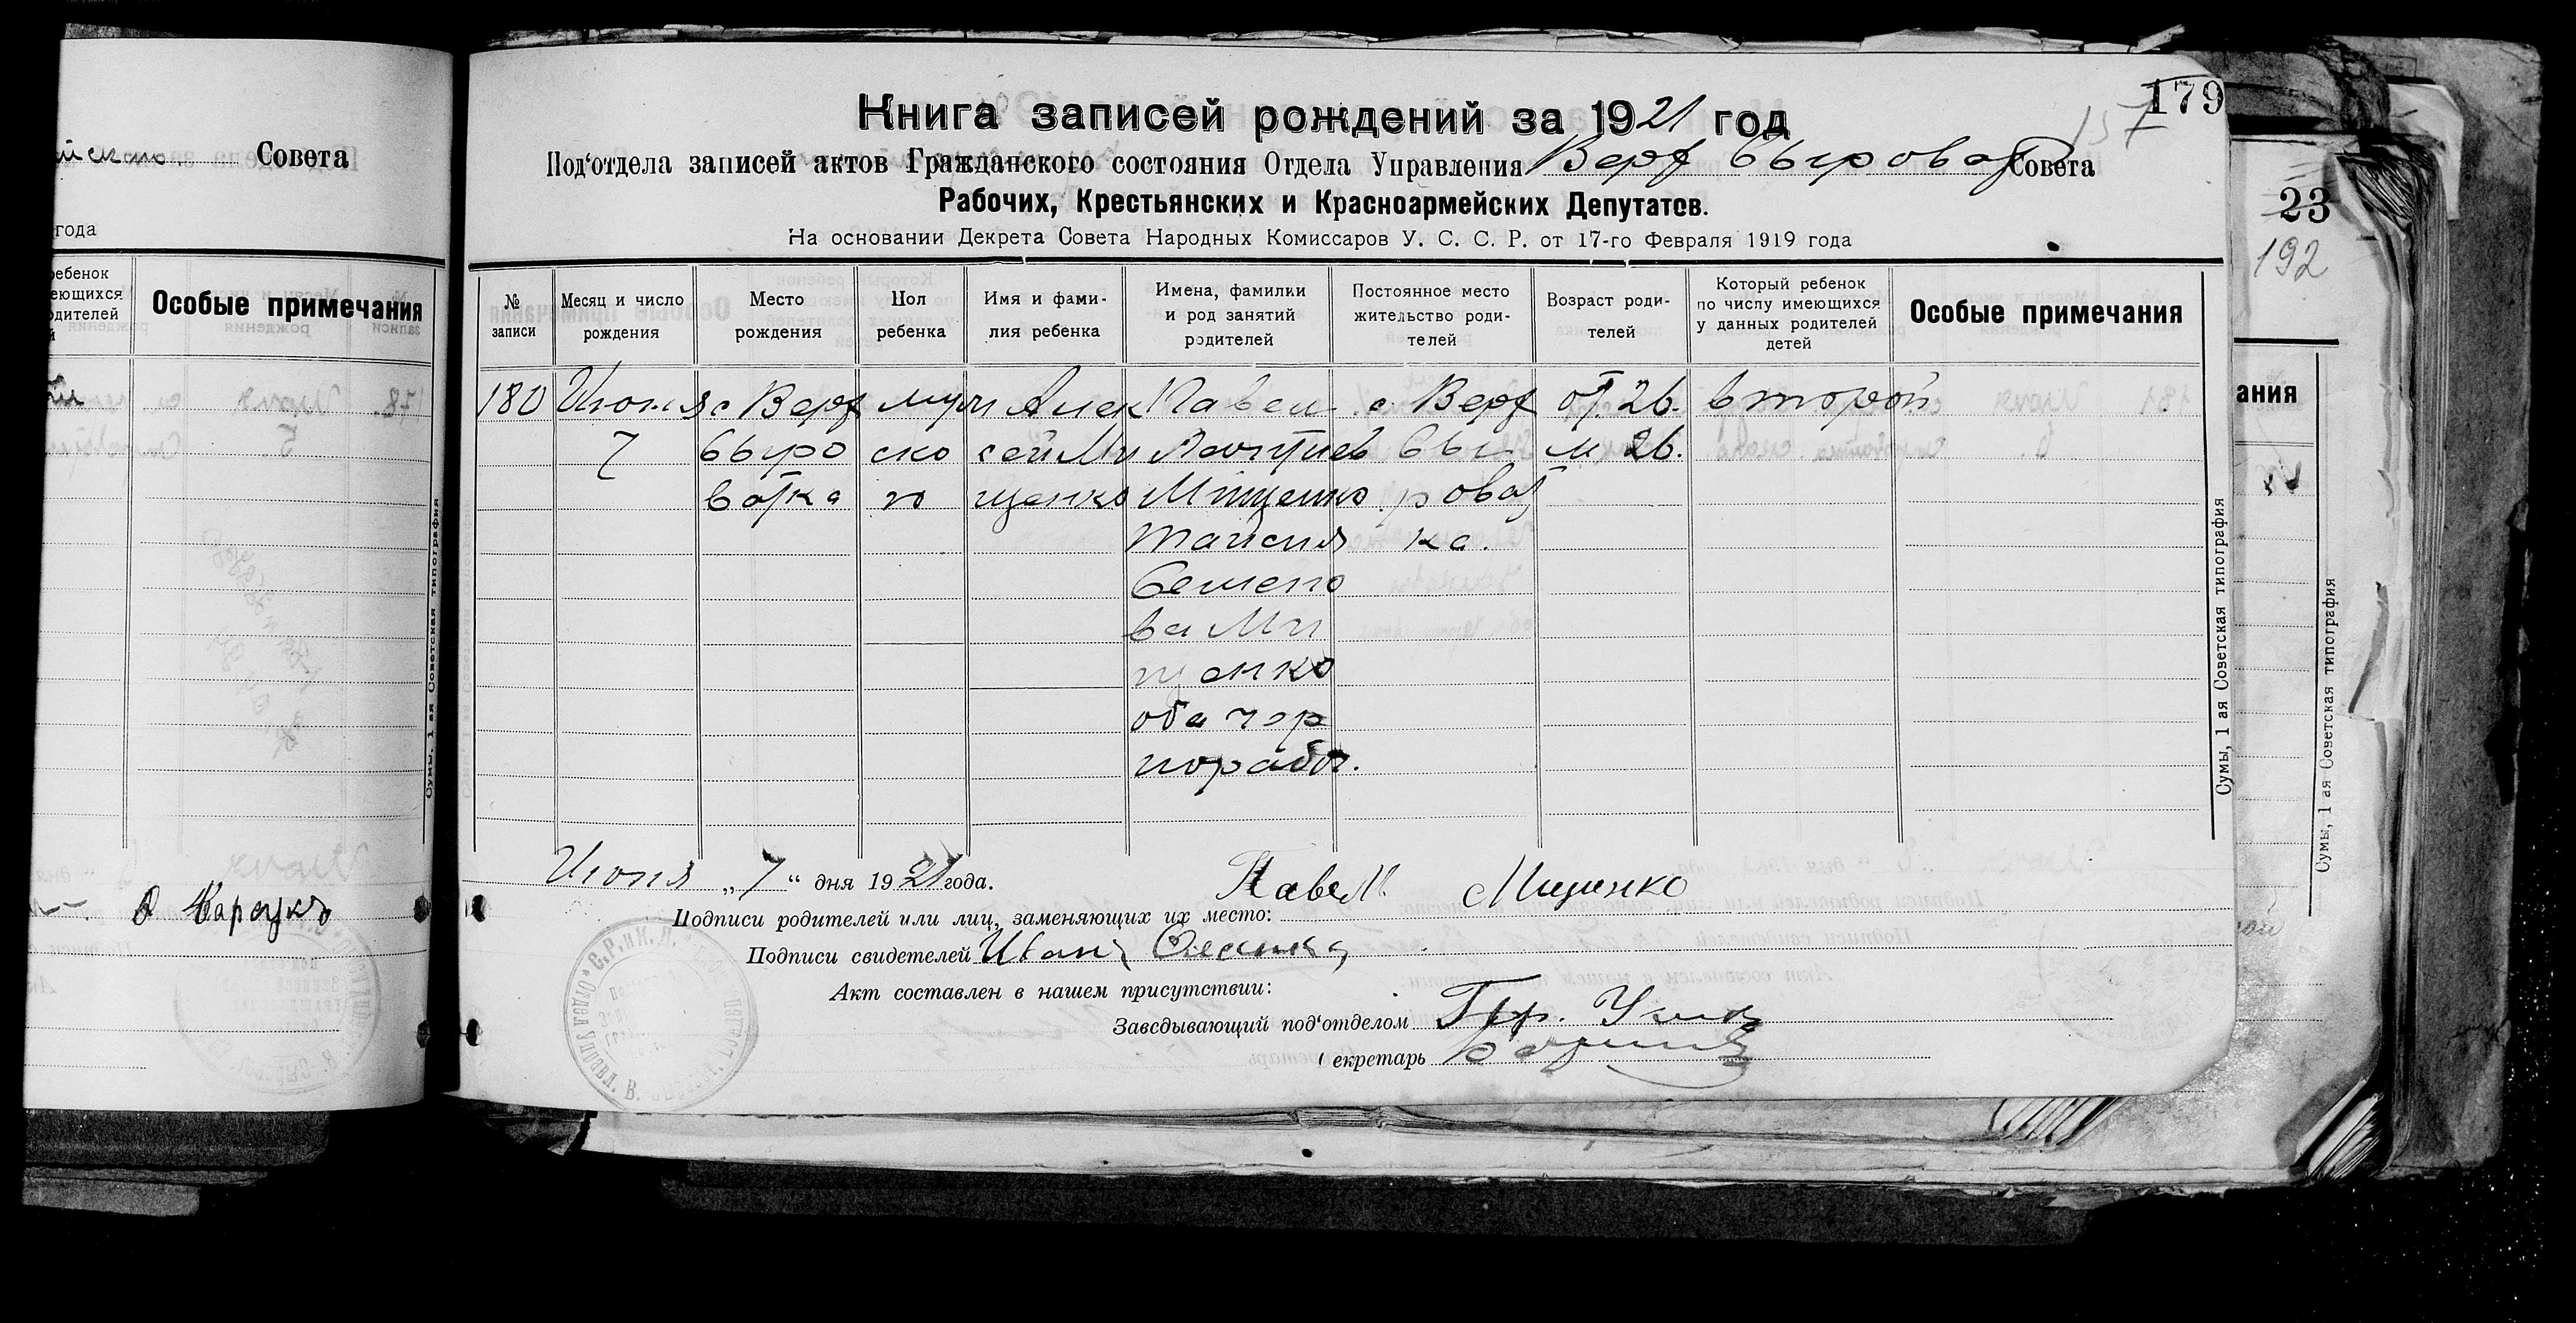 179
157
Книга записей рождений за 1921 год
Под'отдела записей актов Гражданского состояния Отдела Управления Верх Сыроват Совета
Рабочих, Крестьянских и Красноармейских Депутатов.
На основании Декрета Совета Народных Комиссаров У. С. С. Р. от 17-го Февраля 1919 года
№ записи
Месяц и число рождения
Место рождения
Пол ребенка
Имя и фами-
лия ребенка
Имена, фамилии
и род занятий
родителей
Постоянное место
жительство роди-
телей
Возраст роди-
телей
Который ребенок
по числу имеющихся
у данных родителей
детей
Особые примечания
180
Июня
7
с Верх
Сыро
ватка
муж
ско
го
Алек
сей Ми
щенко
Павел
Леонтиев
Мищенко
Таисия
Семено
ва Ми
щенко
оба чор
норабоч.
с Верх
Сы
роват
ка.
от. 26.
м. 26.
второй
Июня „7“ дня 1921 года.
Павел Мищенко
Подписи родителей или лиц, заменяющих их место:
Подписи свидетелей Иван
Акт составлен в нашем присутствии:
Заведывающий под'отделом Гр.
екретарь
Сумы, 1 ая Советская типография
йского Совета
года
ребенок
еющихся
одителей
й
Особые примечания
Сумы, 1 ая Советская типография
23
192
ания
Сумы, 1 ая Советская типография